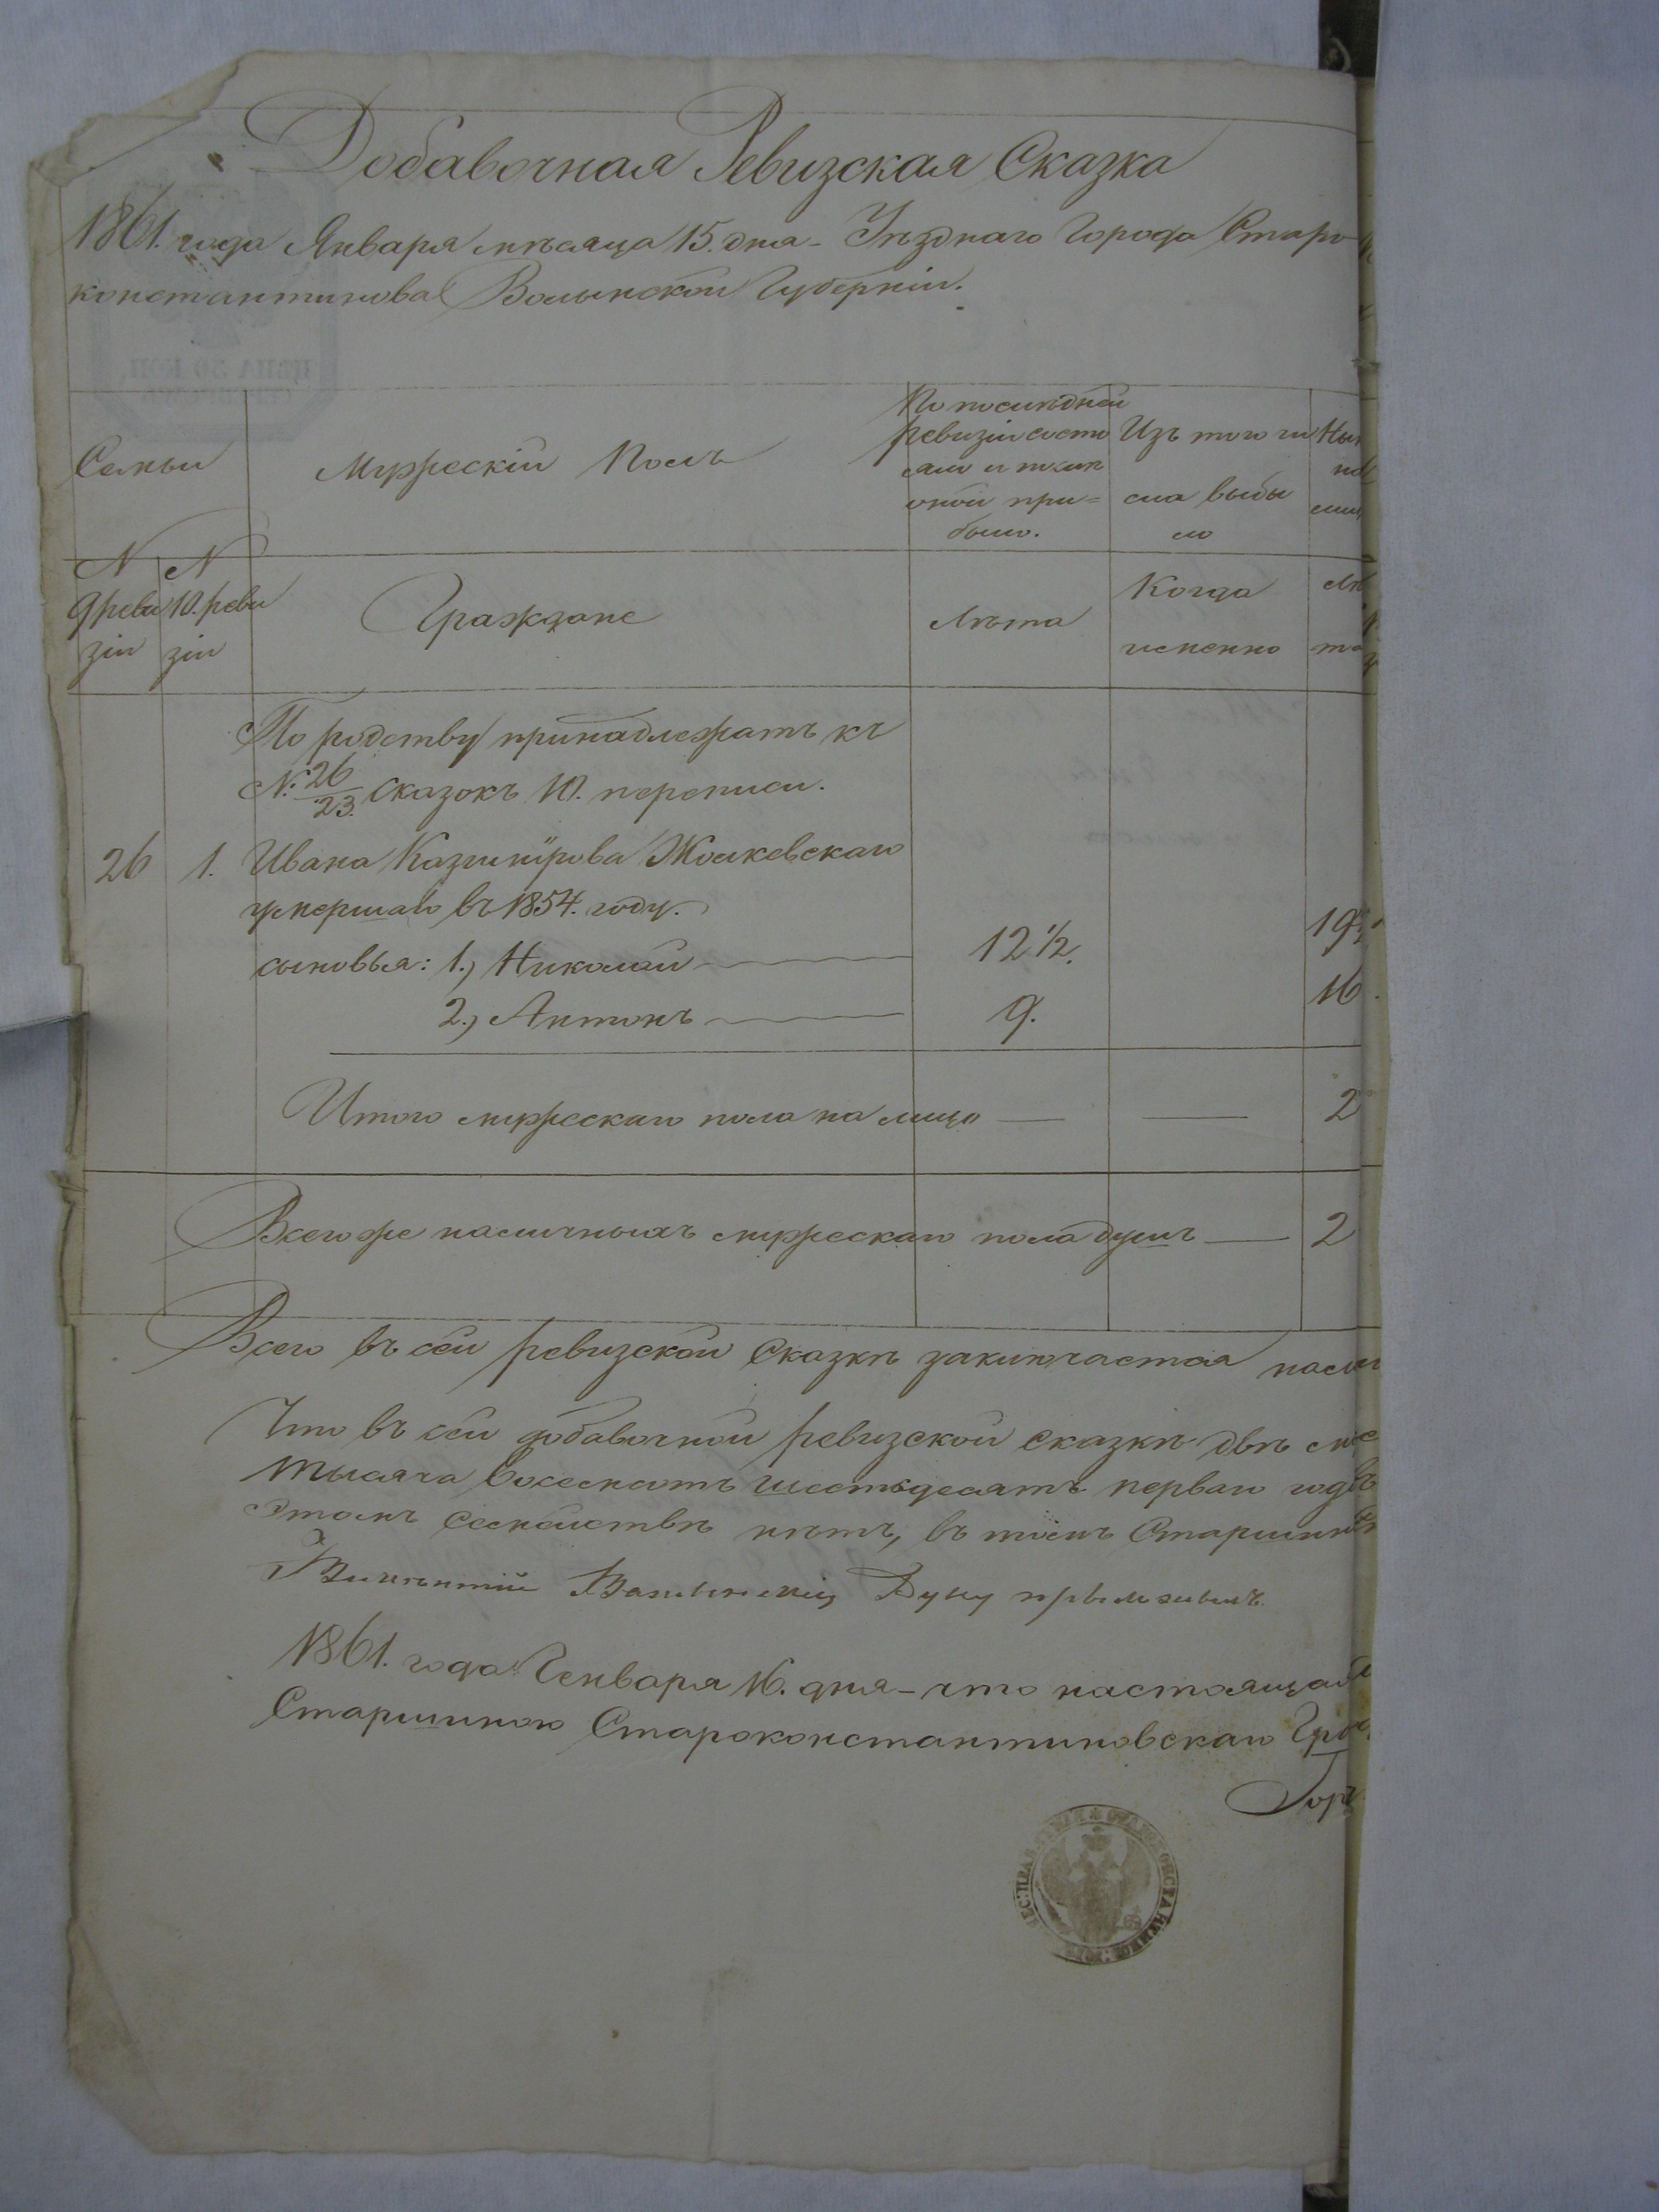 Добавочная Ревизская Сказка
1861. года Января мѣсяца 15. дня - Уѣзднаго Города Старо
константинова Волынской Губерніи.
ЦѢНА 30 КОП.
Семьи
Мужескій Полъ
По послѣдней
ревизіи состо
яло и послѣ
оной при=
было.
Изъ того чи
сла выбы
ло
Ны
N
9 реви
зіи
N
10. реви
зіи
Граждане
Лѣта
Когда
именно
Лѣ
та
По родству принадлежатъ къ
N. 26/23. сказокъ 10. переписи.
26 1. Ивана Казимірова Жолкевскаго
умершаго въ 1854. году.
сыновья: 1., Николай 12 ½. 19½
2., Антонъ 9. 16
Итого мужескаго пола на лицо 2
Всего же наличныхъ мужескаго пола душъ 2
Всего въ сей ревизской Сказкѣ заключается нали
Что въ сей добавочной ревизской сказкѣ двѣ
тысяча восемсотъ шестьдесятъ перваго года
этомъ семействѣ нѣтъ, въ томъ Старшин
Викентій
1861. года Генваря 16. дня - что настоящая
Старшиною Староконстантиновскаго Гра
Гор